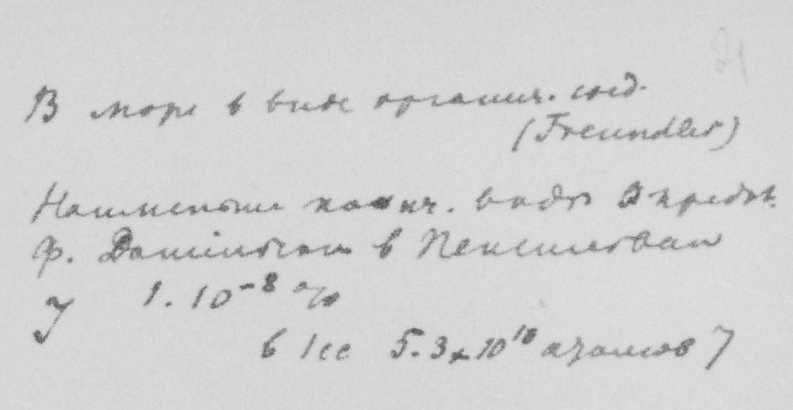 В море в виде органич. соед.
(Freundler)
Наименьшие колич. воды
р. в Пенсильван
J 1.10⁻⁸ %
в 1cc 5.3×10¹⁰ атомов J